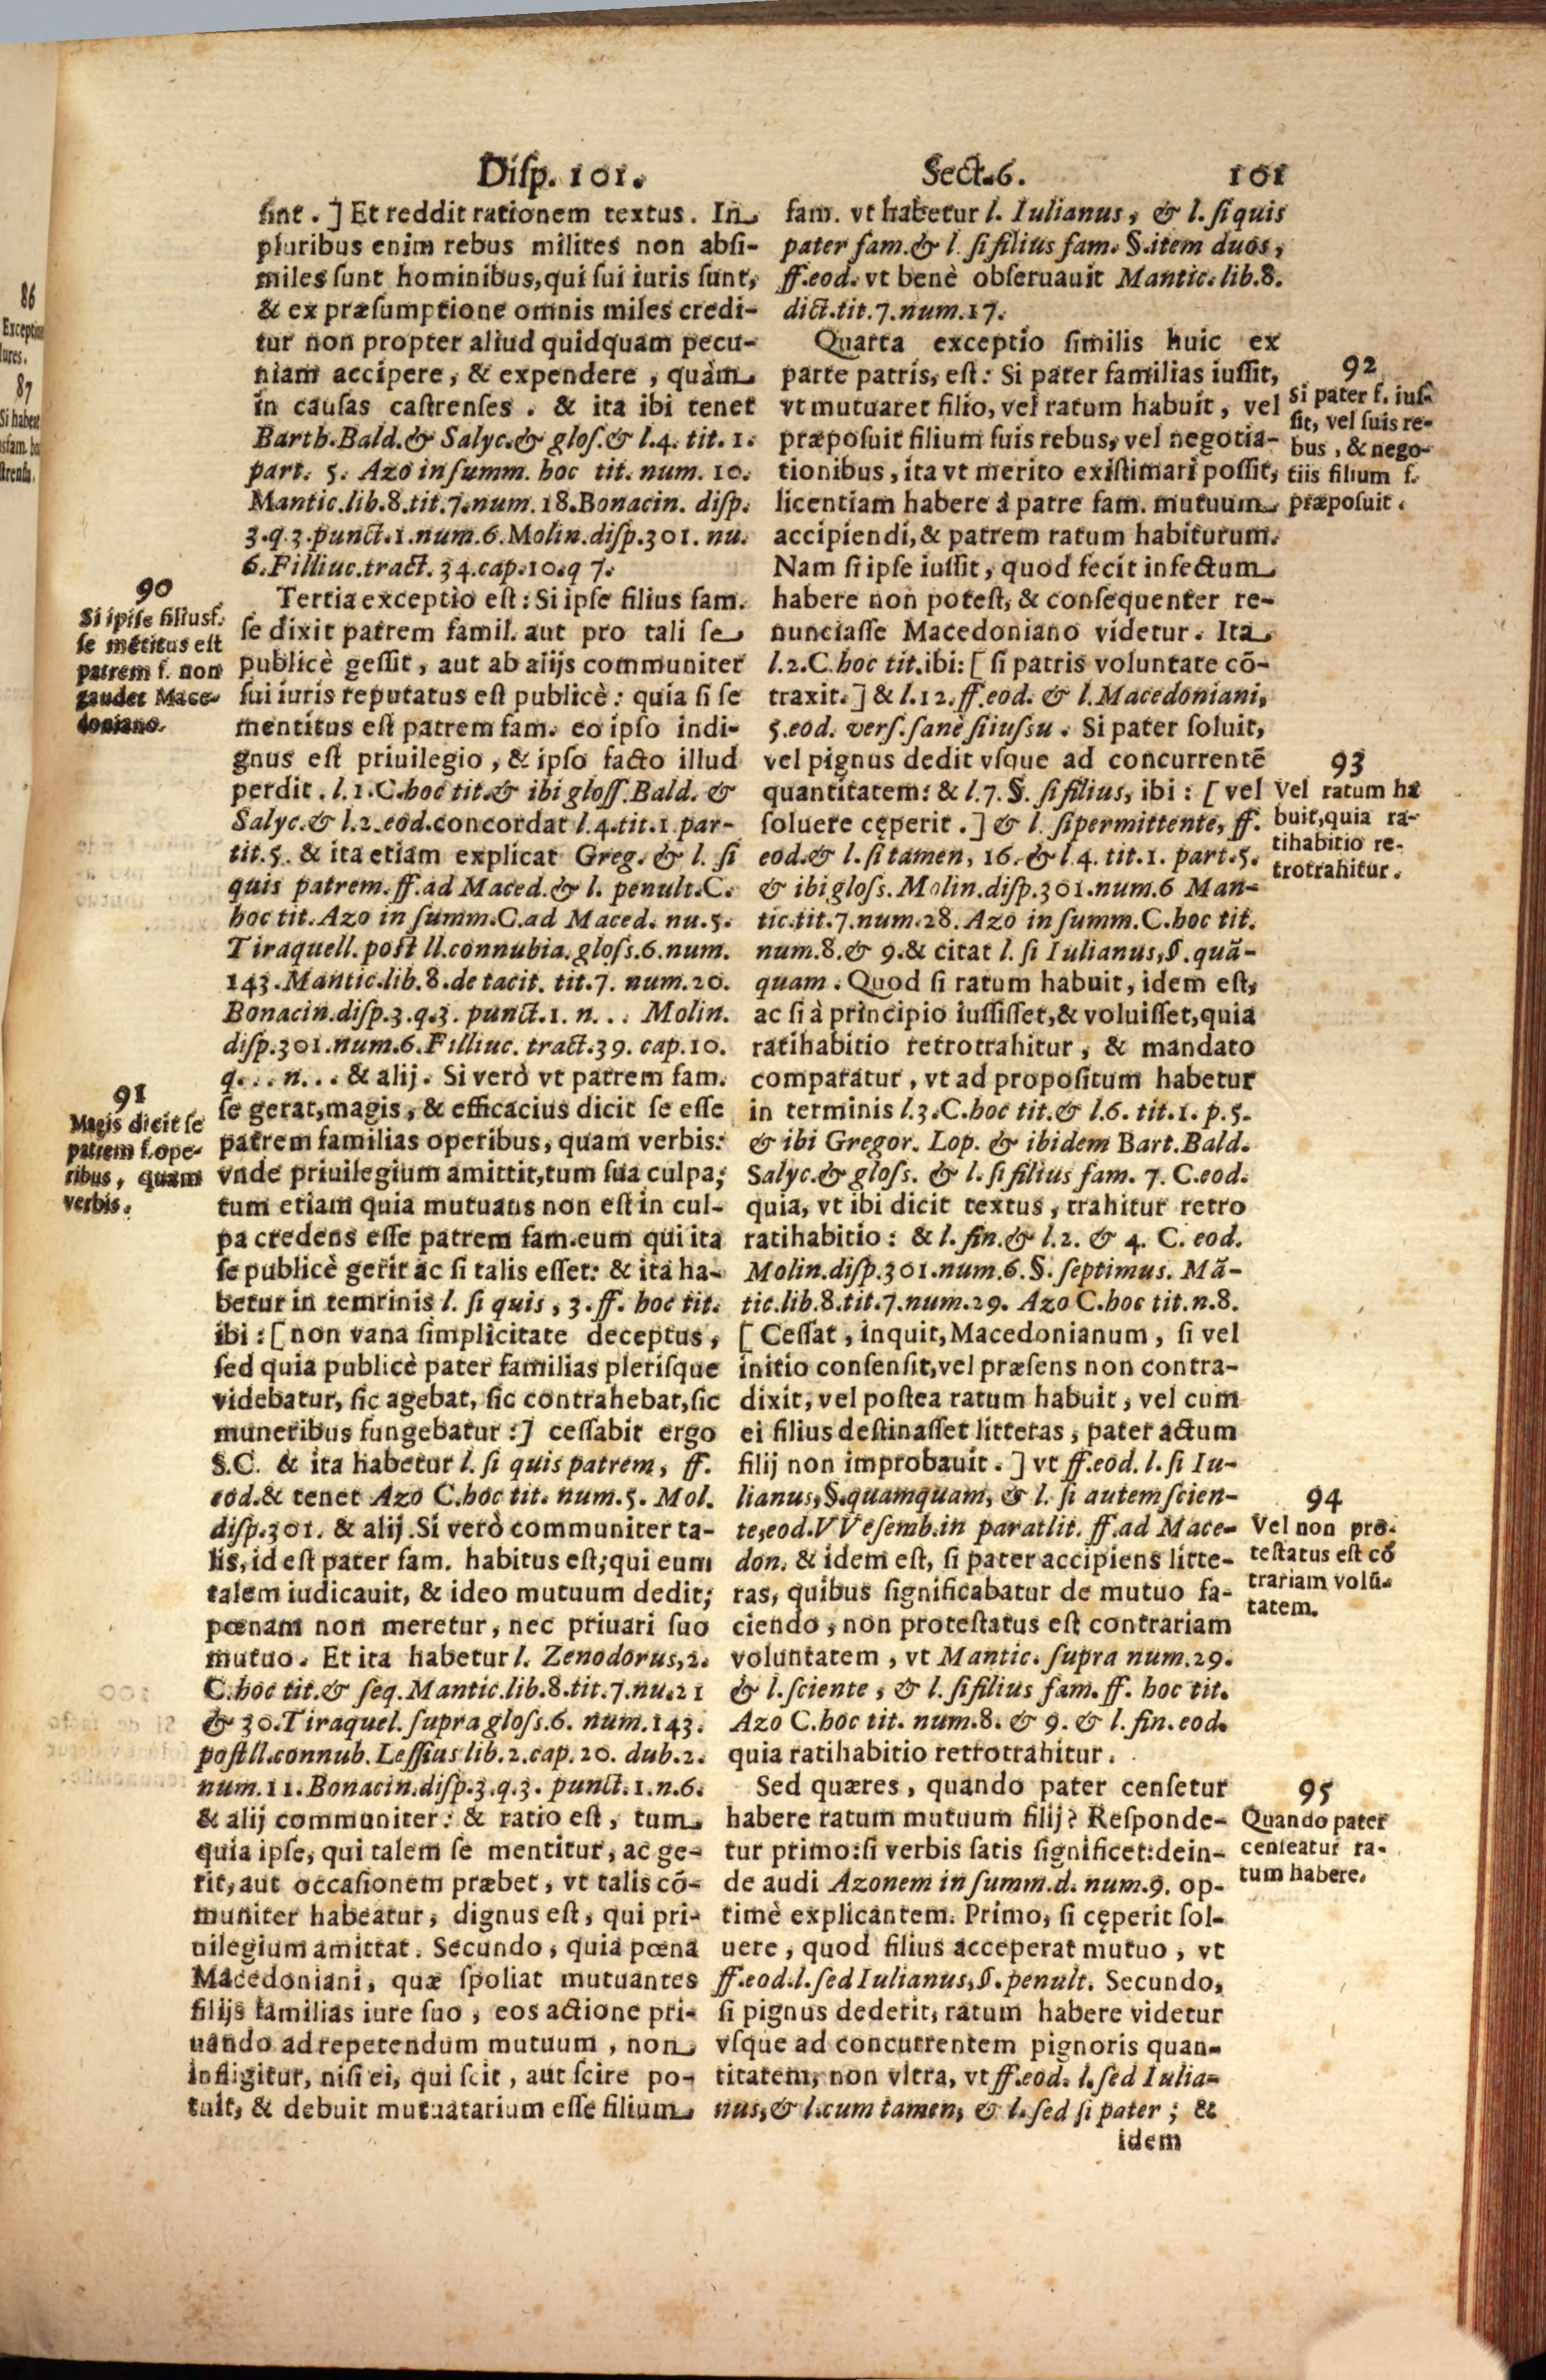 Disp. 101. Sect.6. 101
sint. ] Et reddit rationem textus. In
pluribus enim rebus milites non absi-
miles sunt hominibus,qui sui iuris sunt,
& ex præsumptione omnis miles credi-
tur non propter aliud quidquam pecu-
niam accipere, & expendere, quàm
in causas castrenses. & ita ibi tenet
Barth.Bald.& Salyc.& glos.& l.4. tit. 1.
part. 5. Azo in summ. hoc tit. num. 10.
Mantic.lib.8.tit.7.num.18.Bonacin. disp.
3.q.3.punct.1.num.6.Molin.disp.301. nu.
6.Filliuc.tract. 34.cap.10.q 7.
90
Si ipise filiusf.
se mẽtitus est
patrem f. non
gaudet Mace-
doniano.
Tertia exceptio est: Si ipse filius fam.
se dixit patrem famil. aut pro tali se
publicè gessit, aut ab alijs communiter
sui iuris reputatus est publicè: quia si se
mentitus est patrem fam. eo ipso indi-
gnus est priuilegio, & ipso facto illud
perdit. l.1.C.hoc tit.& ibi gloss.Bald. &
Salyc.& l.2.eod.concordat l.4.tit.1.par-
tit.5. & ita etiam explicat Greg. & l. si
quis patrem.ff.ad Maced.& l. penult.C.
hoc tit. Azo in summ.C.ad Maced. nu.5.
Tiraquell.post ll.connubia.glos.6.num.
143.Mantic.lib.8.de tacit. tit.7. num.20.
Bonacin.disp.3.q.3. punct.1. n... Molin.
disp.301.num.6.Filliuc. tract.39. cap.10.
q... n... & alij. Si verò vt patrem fam.
91
Magis dicit se
patrem f.ope-
ribus, quam
verbis.
se gerat,magis, & efficacius dicit se esse
patrem familias operibus, quam verbis:
vnde priuilegium amittit,tum sua culpa;
tum etiam quia mutuans non est in cul-
pa credens esse patrem fam.eum qui ita
se publicè gerit ac si talis esset: & ita ha-
betur in temrinis l. si quis, 3.ff. hoc tit.
ibi: [ non vana simplicitate deceptus,
sed quia publicè pater familias plerisque
videbatur, sic agebat, sic contrahebat,sic
muneribus fungebatur :] cessabit ergo
S.C. & ita habetur l. si quis patrem, ff.
eod.& tenet Azo C.hoc tit. num.5. Mol.
disp.301. & alij.Si verò communiter ta-
lis, id est pater fam. habitus est;qui eum
talem iudicauit, & ideo mutuum dedit;
pœnam non meretur, nec priuari suo
mutuo. Et ita habetur l. Zenodorus,2.
C.hoc tit.& seq.Mantic.lib.8.tit.7.nu.21
& 30.Tiraquel. supra glos.6. num.143.
post ll.connub. Lessius lib.2.cap.20. dub.2.
num.11.Bonacin.disp.3.q.3. punct.1.n.6.
& alij communiter: & ratio est, tum
quia ipse, qui talem se mentitur, ac ge-
rit, aut occasionem præbet, vt talis cõ-
muniter habeatur, dignus est, qui pri-
uilegium amittat. Secundo, quia pœna
Macedoniani, quæ spoliat mutuantes
filijs familias iure suo, eos actione pri-
uando ad repetendum mutuum, non
infligitur, nisi ei, qui scit, aut scire po-
tuit, & debuit mutuatarium esse filium
fam. vt habetur l. Iulianus, & l. si quis
pater fam.& l. si filius fam. §.item duos,
ff.eod. vt benè obseruauit Mantic.lib.8.
dict.tit.7.num.17.
Quarta exceptio similis huic ex
parte patris, est: Si pater familias iussit,
vt mutuaret filio, vel ratum habuit, vel
præposuit filium suis rebus, vel negotia-
tionibus, ita vt merito existimari possit,
licentiam habere à patre fam. mutuum
accipiendi, & patrem ratum habiturum.
92
Si pater f. ius-
sit, vel suis re-
bus, & nego-
tiis filium f.
præposuit.
Nam si ipse iussit, quod fecit infectum
habere non potest, & consequenter re-
nunciasse Macedoniano videtur. Ita
l.2.C.hoc tit.ibi: [ si patris voluntate cõ-
traxit. ] & l.12.ff.eod. & l.Macedoniani,
5.eod. vers.sanè si iussu. Si pater soluit,
vel pignus dedit vsque ad concurrentẽ
quantitatem: & l.7.§. si filius, ibi: [ vel
soluere cęperit. ] & l. si permittente, ff.
eod.& l. si tamen, 16.& l 4. tit.1. part.5.
93
Vel ratum ha
buit,quia ra-
tihabitio re-
trotrahitur.
& ibi glos. Molin.disp.301.num.6 Man-
tic.tit.7.num.28. Azo in summ.C.hoc tit.
num.8.& 9.& citat l. si Iulianus,§.quã-
quam. Quod si ratum habuit, idem est,
ac si à principio iussisset,& voluisset,quia
ratihabitio retrotrahitur, & mandato
comparatur, vt ad propositum habetur
in terminis l.3.C.hoc tit.& l.6. tit.1. p.5.
& ibi Gregor. Lop. & ibidem Bart.Bald.
Salyc.& glos. & l. si filius fam. 7. C.eod.
quia, vt ibi dicit textus, trahitur retro
ratihabitio: & l. fin.& l.2. & 4. C. eod.
Molin.disp.301.num.6.§. septimus. Mã-
tic.lib.8.tit.7.num.29. Azo C.hoc tit.n.8.
[ Cessat, inquit,Macedonianum, si vel
initio consensit,vel præsens non contra-
dixit, vel postea ratum habuit, vel cum
ei filius destinasset litteras, pater actum
filij non improbauit. ] vt ff.eod. l. si Iu-
lianus,§.quamquam, & l. si autem scien-
te,eod.VVesemb.in paratlit. ff.ad Mace-
don. & idem est, si pater accipiens litte-
ras, quibus significabatur de mutuo fa-
ciendo, non protestatus est contrariam
voluntatem, vt Mantic. supra num.29.
94
Vel non pro-
testatus est cõ
trariam volũ-
tatem.
& l.sciente, & l. si filius fam. ff. hoc tit.
Azo C.hoc tit. num.8. & 9. & l. fin. eod.
quia ratihabitio retrotrahitur.
Sed quæres, quando pater censetur
habere ratum mutuum filij? Responde-
tur primo:si verbis satis significet:dein-
de audi Azonem in summ.d. num.9. op-
95
Quando pater
censeatur ra-
tum habere.
timè explicantem. Primo, si cęperit sol-
uere, quod filius acceperat mutuo, vt
ff.eod.l.sed Iulianus,§.penult. Secundo,
si pignus dederit, ratum habere videtur
vsque ad concurrentem pignoris quan-
titatem, non vltra, vt ff.eod. l.sed Iulia-
nus,& l.cum tamen, & l.sed si pater; &
idem
86
87